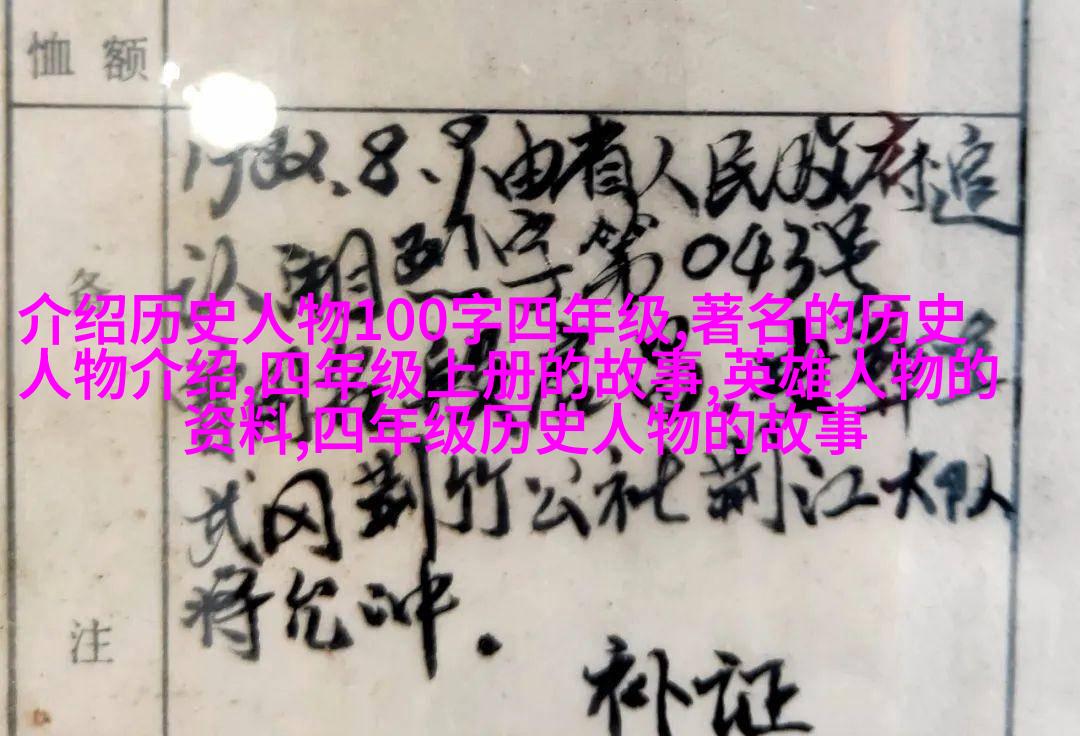 恤额
1982.8.9由省人民政府追
认湘烈字第043号
备
介绍历史人物100字四年级,著名的历史
人物介绍,四年级上册的故事,英雄人物的
资料,四年级历史人物的故事
武冈荆竹公社荆江大队
蒋允冲.
注
补证